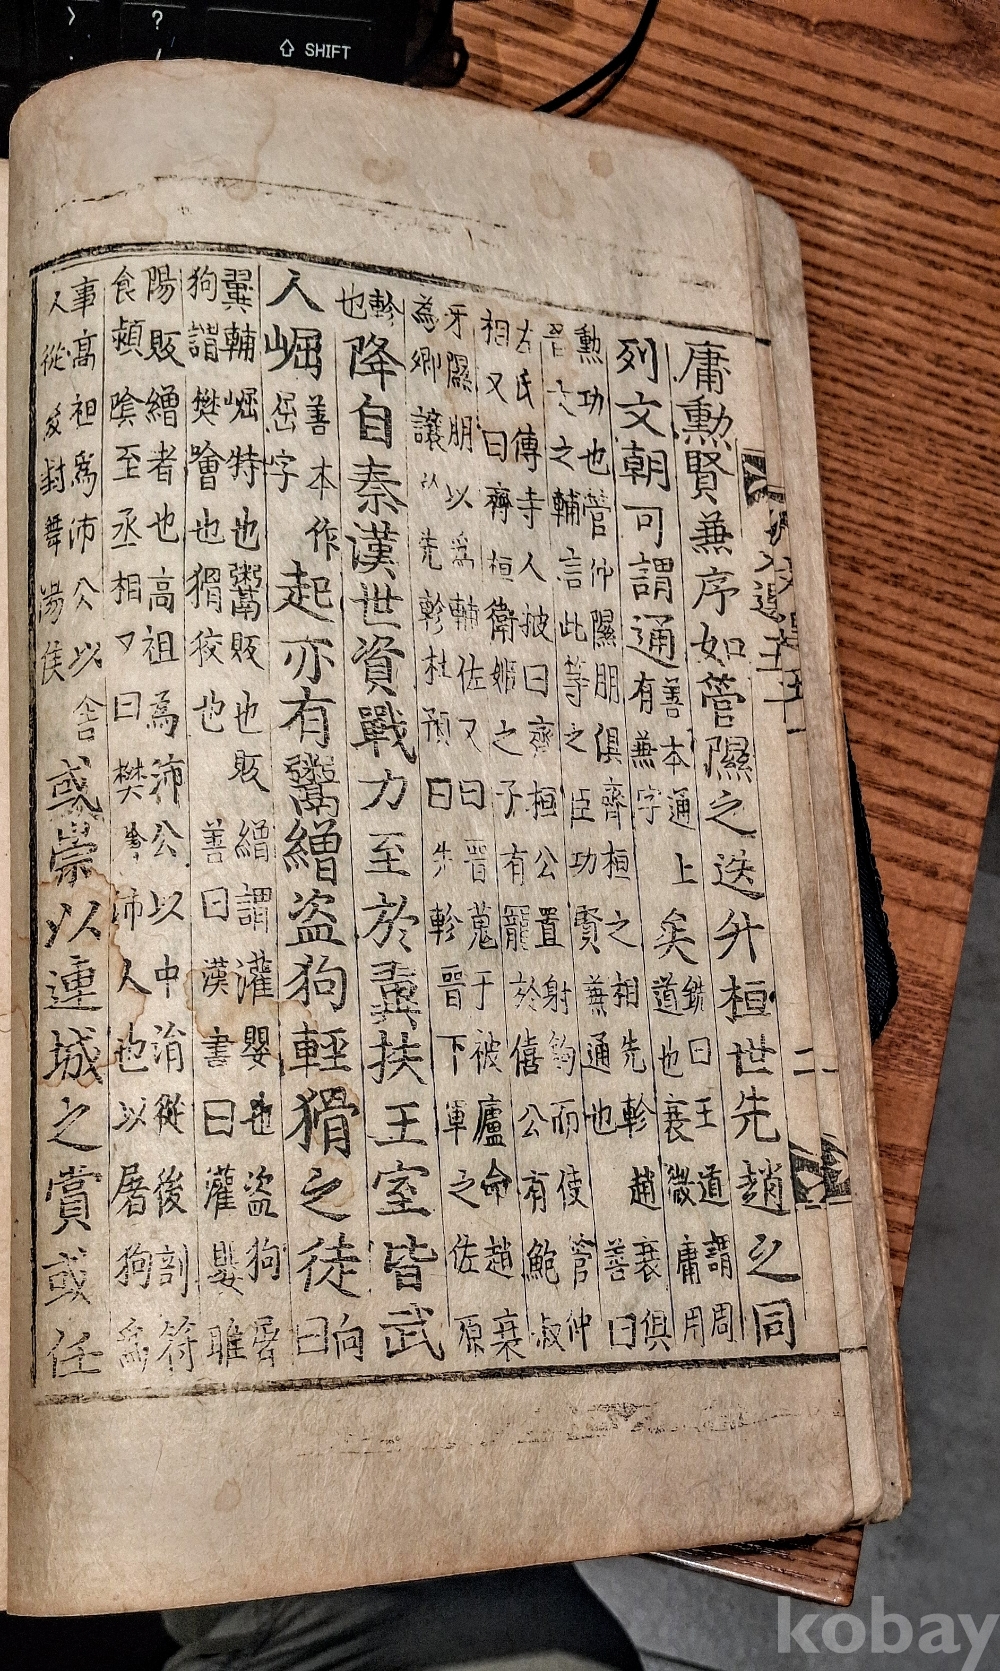 庸勳賢兼序如管隰之迭升桓世先趙之同
列文朝可謂通善本通上有兼字矣銑曰王道謂周道也衰微庸用
勳功也管仲隰朋俱齊桓之相先軫趙衰俱
晉文之輔言此等之臣功賢兼通也 善曰
左氏傳寺人披曰齊桓公置射鉤而使管仲
相又曰齊桓衛姬之子有寵於僖公有鮑叔
牙隰朋以爲輔佐又曰晉蒐于被廬命趙衰
為卿讓以先軫杜預曰先軫晉下軍之佐原
軫也降自秦漢世資戰力至於翼扶王室皆武
人崛善本作屈字起亦有鬻繒盗狗輕猾之徒向曰
翼輔崛特也鬻販也販繒謂灌嬰也盗狗屠
狗謂樊噲也猾狡也 善曰漢書曰灌嬰睢
陽販繒者也高祖爲沛公以中涓從後剖符
食潁陰至丞相又曰樊噲沛人也以屠狗爲
事高祖爲沛公以舍
人從後封舞陽侯
或崇以連城之賞或任
二
SHIFT
?
kobay